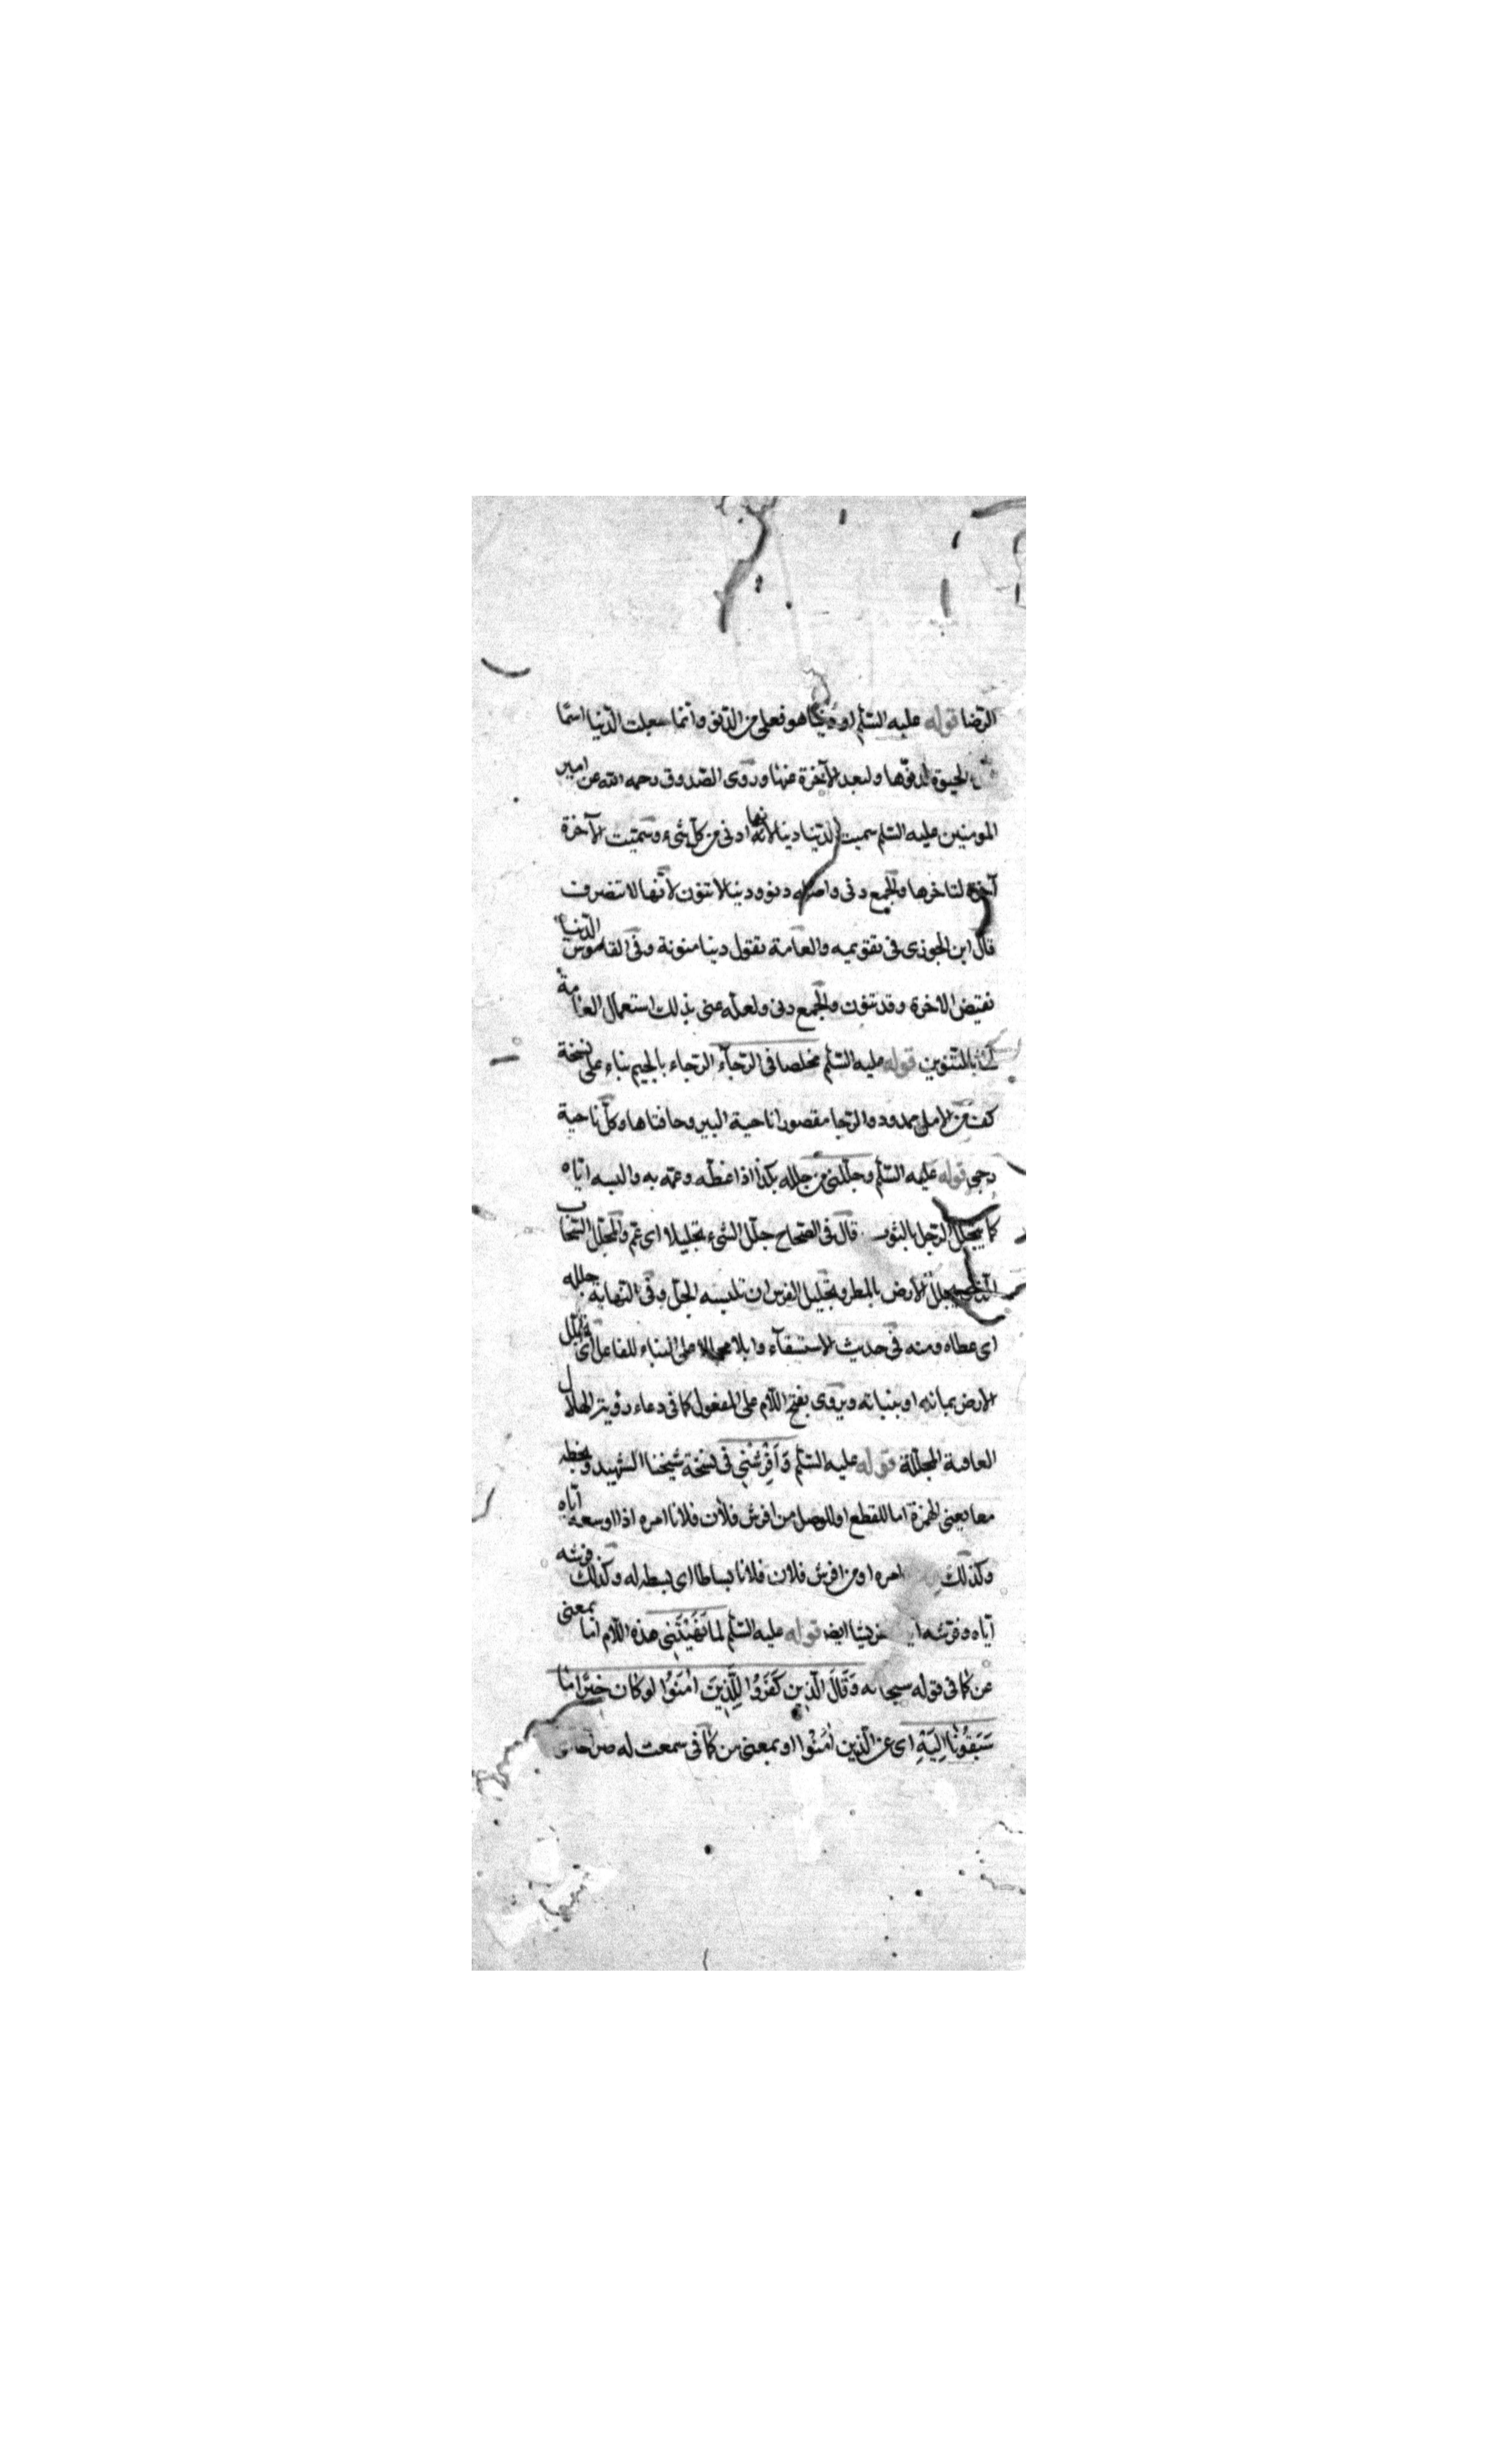 الرضا قوله عليه السلم او دنيا هو فعلى من الدنو وانما سميت الدنيا اسما
الحيوة لدنوها ولبعد الآخرة عنها وروى الصدوق رحمه الله عن امير
المومنين عليه السلم سميت الدنيا دنيا لانها ادنى من كل شىء وسميت الآخرة
آخرة لتاخرها والجمع دنى واصله دنو ودنيا لا تنون لانها لا تنصرف
قال ابن الجوزى فى تقويمه والعامة تقول دنيا منونة وفى القاموس الدنيا
نقيض الاخرة وقد تنون والجمع دنى ولعله عنى بذلك استعمال العامة
بالتنوين قوله عليه السلم مخلصا فى الرجاء الرجاء بالجيم بناء على نسخة
كف من الامل ممدود والرجا مقصورا ناحية البير وحافتاها وكل ناحية
رجى قوله عليه السلم وجللنى من جلله بكذا اذا غطه وعمه به والبسه اياه
كما يتجلل الرجل بالثوب قال فى الصحاح جلل الشىء تجليلا اى عم والمجلل السحاب
الذى يجلل الارض بالمطر وتجليل الفرس ان تلبسه الجل وفى النهاية جلله
اى غطاه ومنه فى حديث الاستسقآء وابلا مجللا على البناء للفاعل اى يجلل
الارض بمائه او بنباته ويروى بفتح اللام على المفعول كما فى دعاء رؤية الهلال
العافية المجللة قوله عليه السلم وَاَفْرِشْنِى فى نسخة شيخنا الشهيد وبخطه
معا يعنى الهمزة اما للقطع او للوصل من افرش فلان فلانا امره اذا اوسعه اياه
وكذلك امره او من افرش فلان فلانا بساطا اى بسطه له وكذلك فرشه
اياه وفرشه ايضا قوله عليه السلم لما نَهَيْتَنِى هذه اللام اما بمعنى
عن كما فى قوله سبحانه وَقَالَ الَّذِينَ كَفَرُوا لِلَّذِينَ امَنُوا لو كان خيرًا ما
سَبَقُونَا اِلَيْهِ اى عن الذين امَنُوا او بمعنى من كما فى سمعت له صراخا